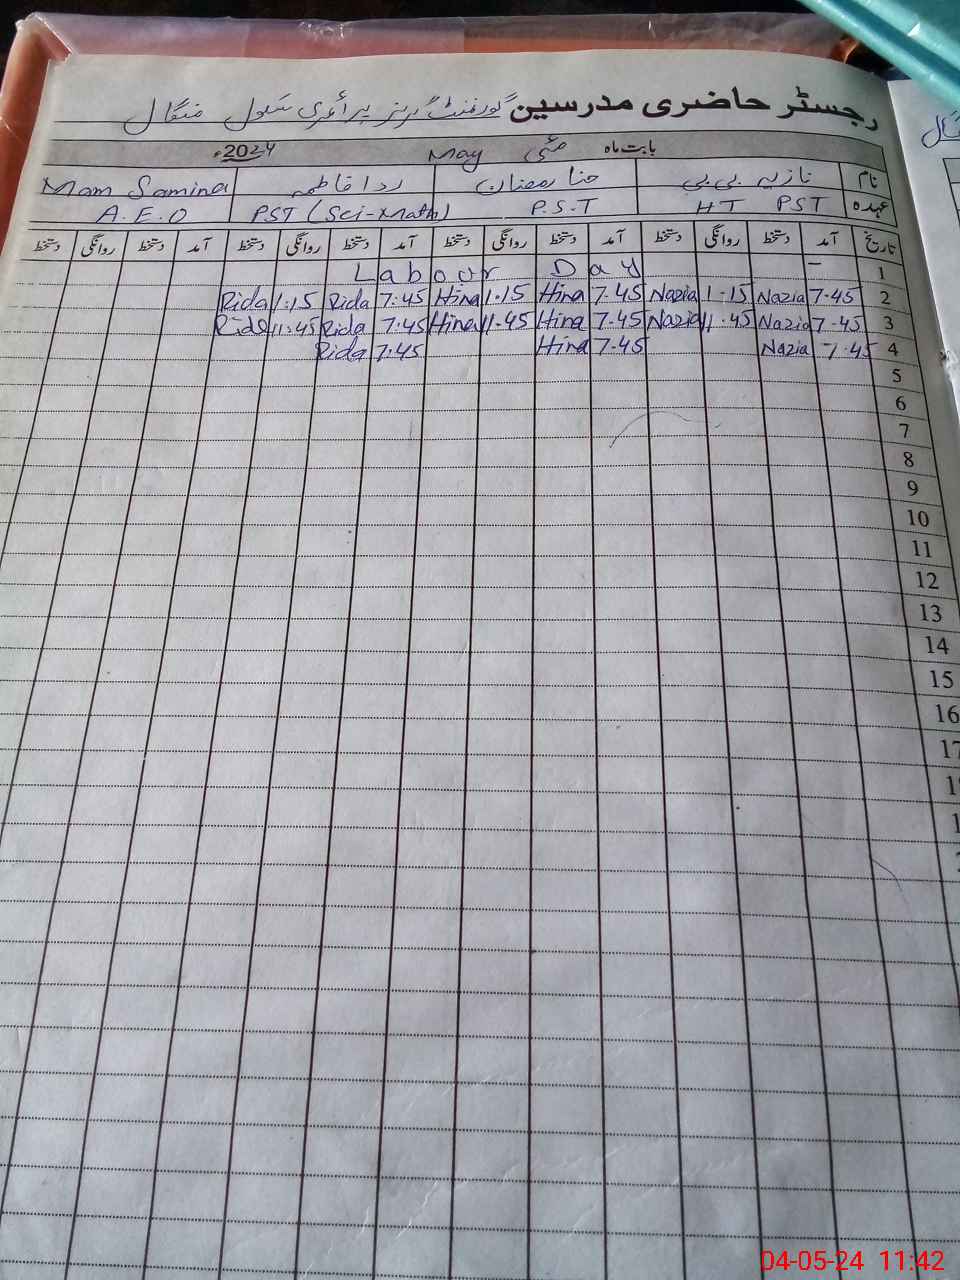 رجسٹر حاضری مدرسین گورنمنٹ گرلز پرائمری سکول منگال
بابت ماہ مئی May 2024ء
نام نازیہ بی بی حنا رمضان ردا فاطمہ Mam Samina
عہدہ HT PST P.S.T PST (Sci-Math) A.E.O
تاریخ آمد دستخط روانگی دستخط آمد دستخط روانگی دستخط آمد دستخط روانگی دستخط آمد دستخط روانگی دستخط
1 – Labour Day
2 7.45 Nazia 1-15 Nazia 7.45 Hina 1.15 Hina 7.45 Rida 1.15 Rida
3 7.45 Nazia 11.45 Nazia 7.45 Hina 11.45 Hina 7.45 Rida 11.45 Rida
4 7.45 Nazia 7.45 Hina 7.45 Rida
5
6
7
8
9
10
11
12
13
14
15
16
17
04-05-24 11:42